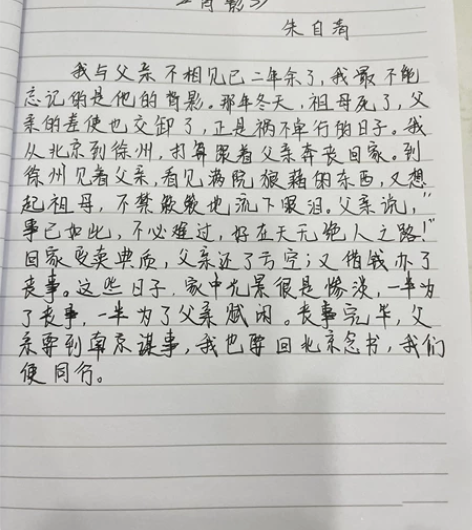 背影
朱自清
我与父亲不相见已二年余了,我最不能
忘记的是他的背影。那年冬天,祖母死了,父
亲的差使也交卸了,正是祸不单行的日子。我
从北京到徐州,打算跟着父亲奔丧回家。到
徐州见着父亲,看见满院狼藉的东西,又想
起祖母,不禁簌簌地流下眼泪。父亲说,“
事已如此,不必难过,好在天无绝人之路!”
回家变卖典质,父亲还了亏空;又借钱办了
丧事。这些日子,家中光景很是惨淡,一半为
了丧事,一半为了父亲赋闲。丧事完毕,父
亲要到南京谋事,我也要回北京念书,我们
便同行。